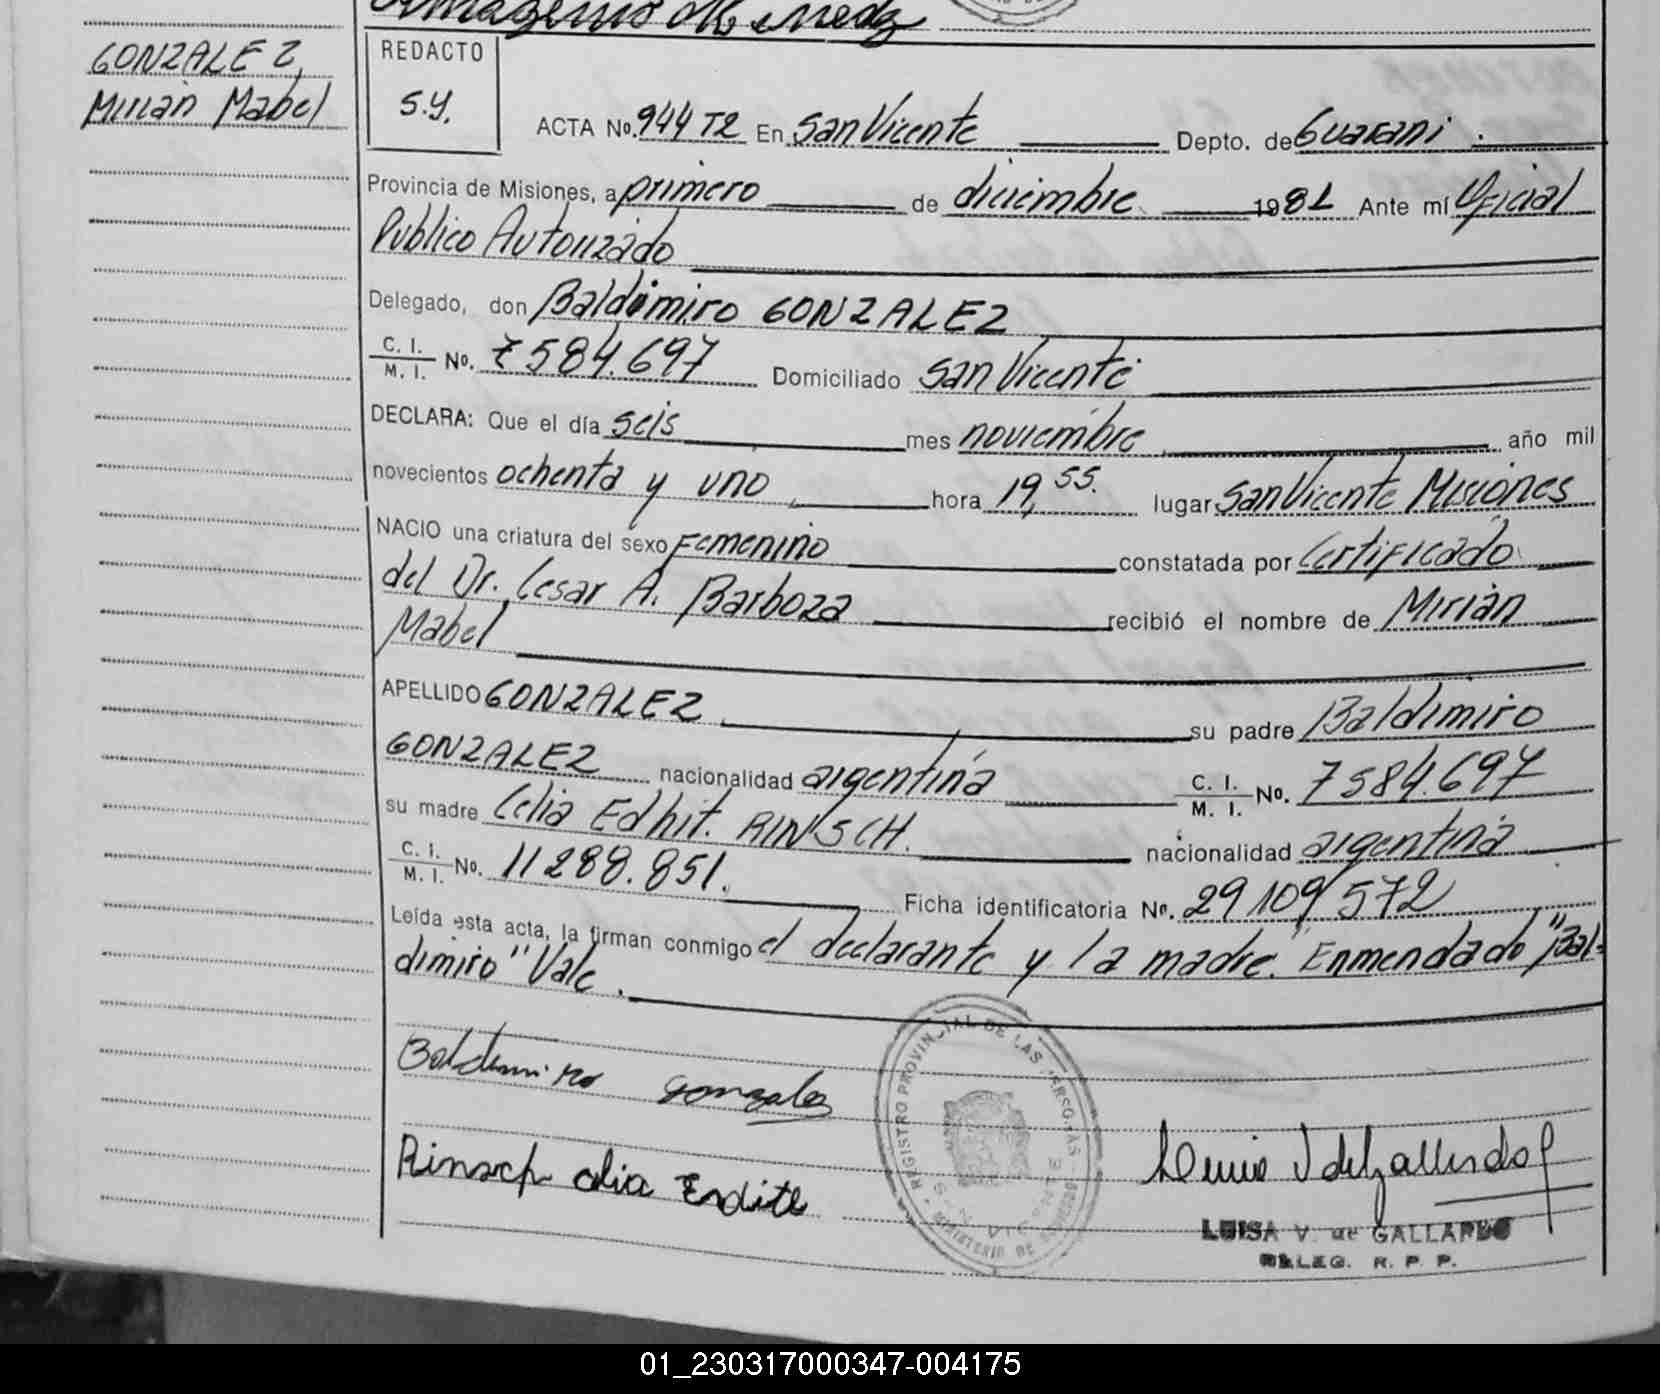 GONZALEZ,
Mirian Mabel
REDACTO
S.Y.
ACTA No. 944 T2 En San Vicente Depto. de Guarani
Provincia de Misiones, a primero de diciembre 1981 Ante mí Oficial
Publico Autorizado
Delegado, don Baldimiro GONZALEZ
C. I. / M. I. No. 7584.697 Domiciliado San Vicente
DECLARA: Que el día seis mes noviembre año mil
novecientos ochenta y uno hora 19,55. lugar San Vicente Misiones
NACIO una criatura del sexo Femenino constatada por Certificado
del Dr. Cesar A. Barboza recibió el nombre de Mirian
Mabel
APELLIDO GONZALEZ su padre Baldimiro
GONZALEZ nacionalidad argentina C. I. / M. I. No. 7584.697
su madre Celia Edhit. RINSCH. nacionalidad argentina
C. I. / M. I. No. 11288.851. Ficha identificatoria No. 29109572
Leída esta acta, la firman conmigo el declarante y la madre. Enmendado "Bal-
dimiro" Vale.
Baldimiro Gonzalez
Rinsch celia Endite
REGISTRO PROVINCIAL DE LAS PERSONAS
MINISTERIO DE
LUISA V. de GALLARDO
DELEG. R. P. P.
01_230317000347-004175